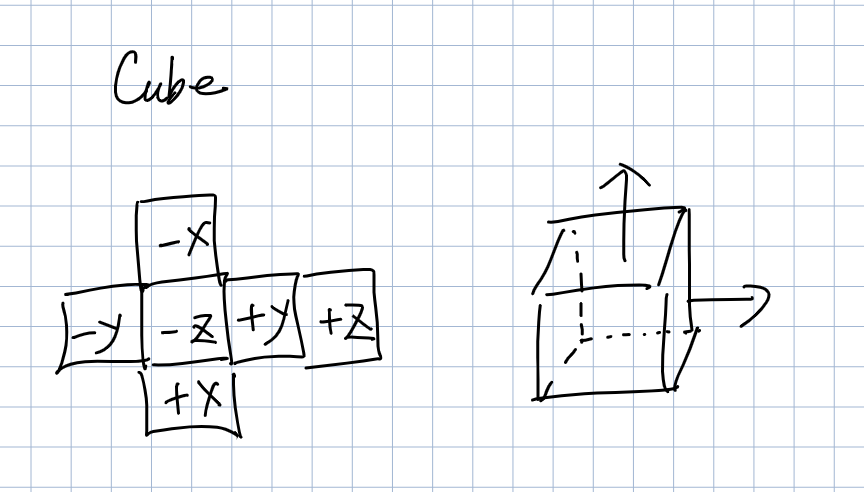 Cube
-X
-y -z +y +z
+X